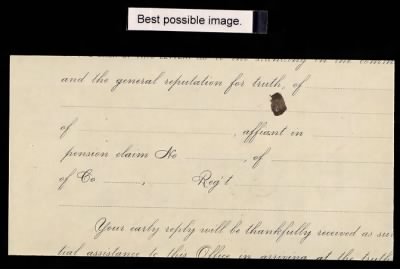 Best possible image.
to the standing in the comm
and the general reputation for truth, of
of , affiant in
pension claim No , of
of Co , Reg't
Your early reply will be thankfully received as sub
tial assistance to this Office in arriving at the truth